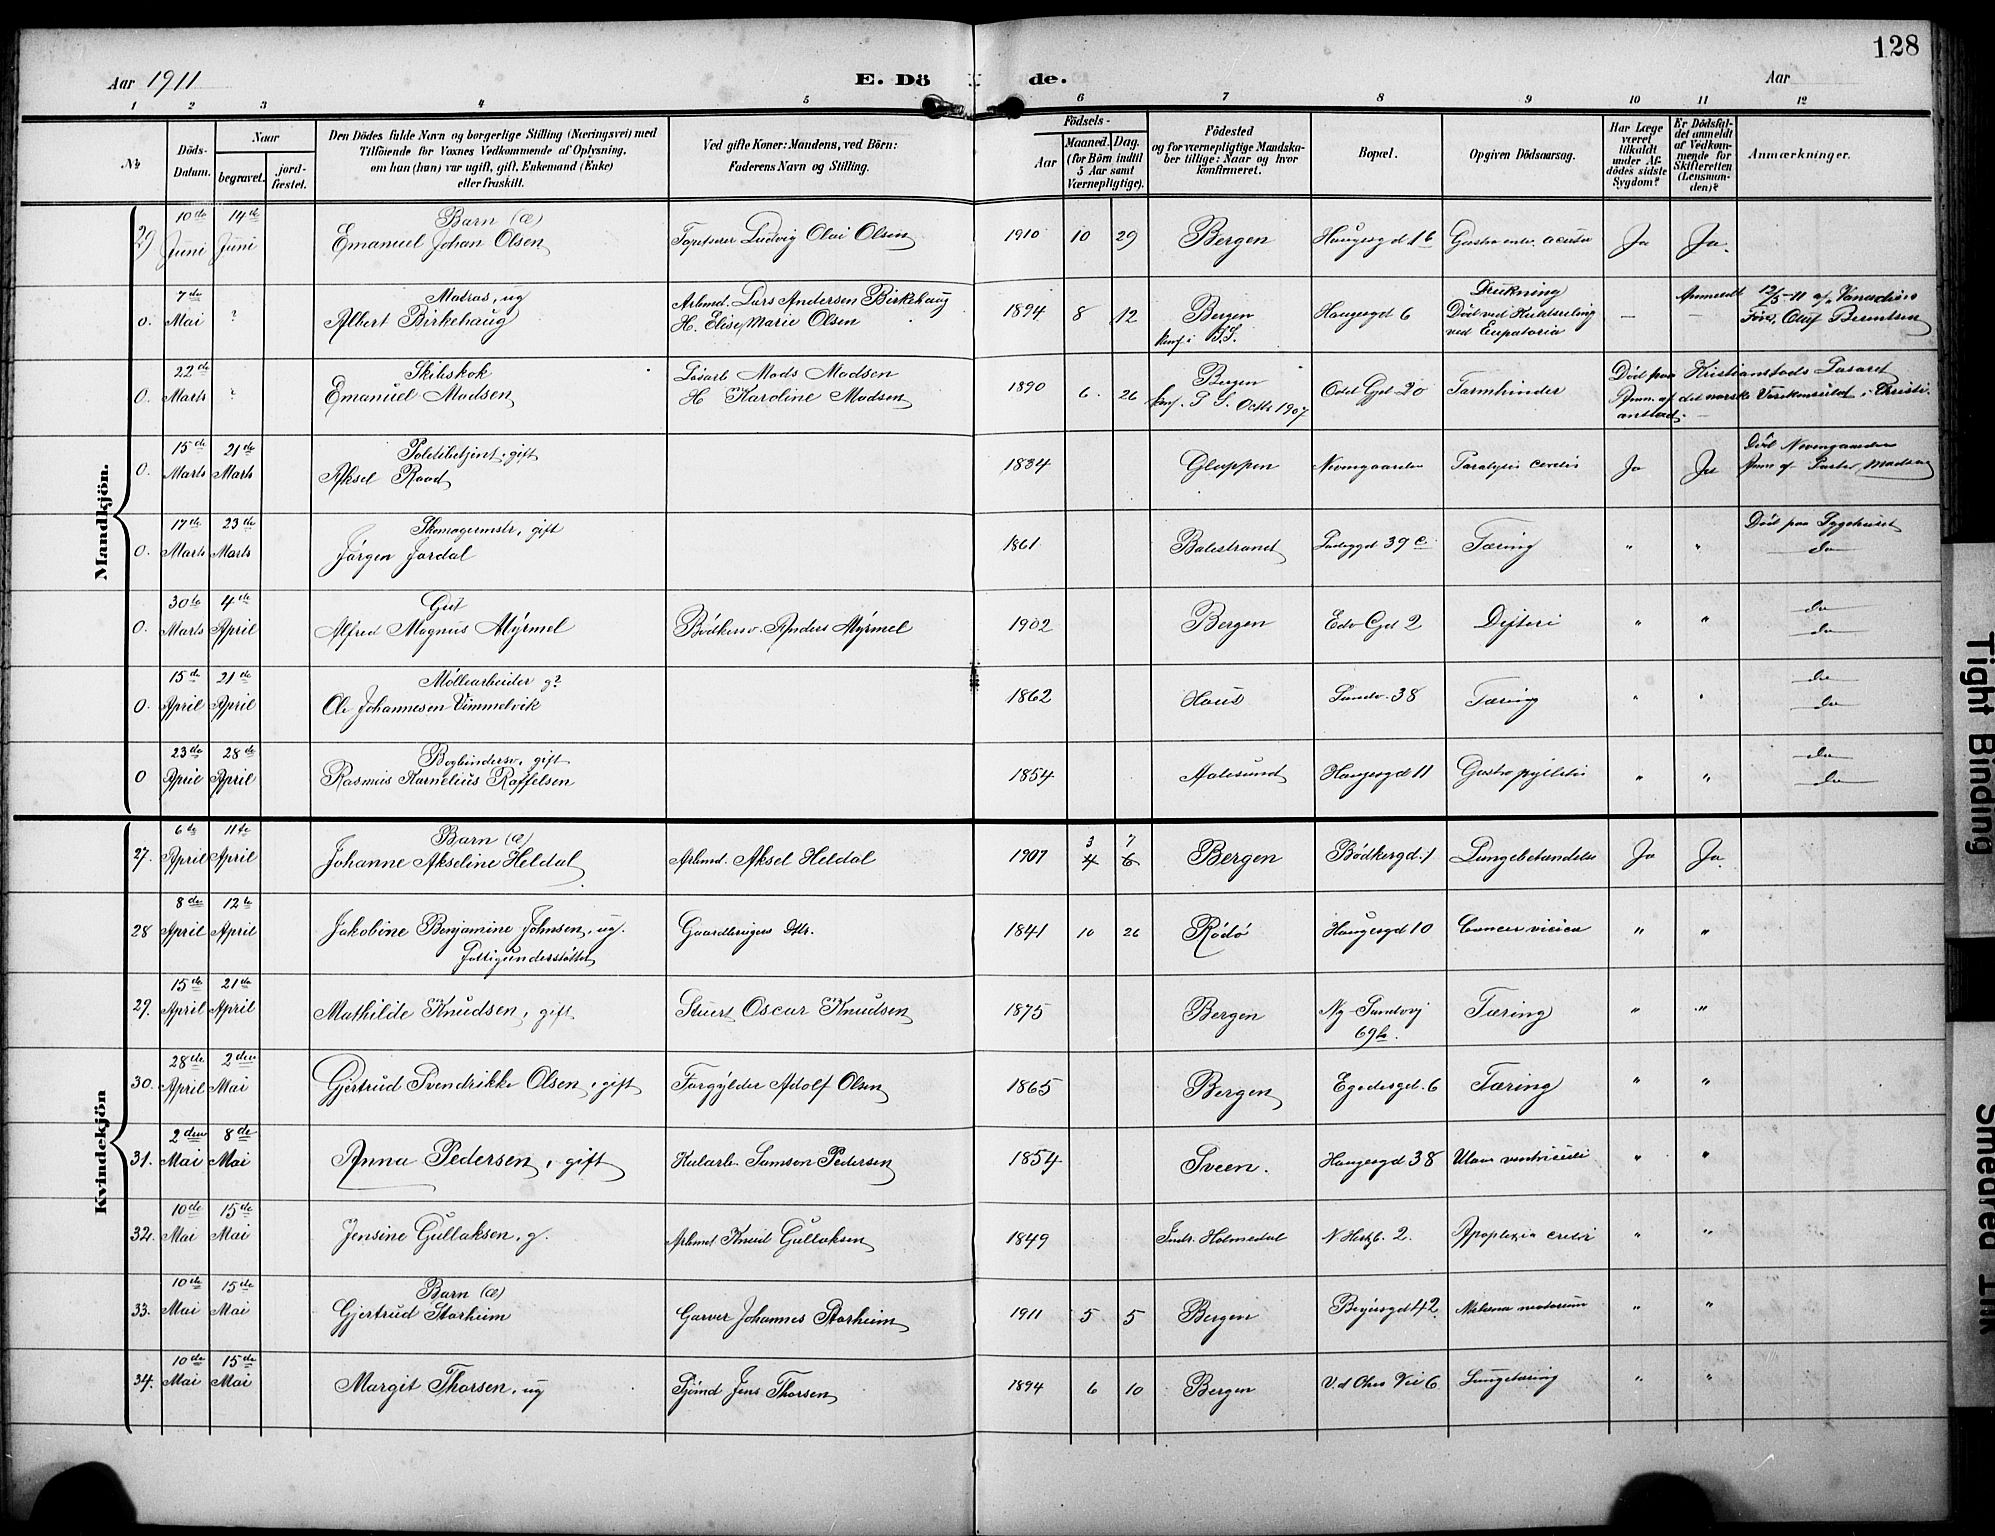 128
Aar 1911
E. Dö de.
Aar
1 2 3 4 5 6 7 8 9 10 11 12
No
Döds-Datum.
Naar
begravet.
jord-fæstet.
Den Dödes fulde Navn og borgerlige Stilling (Næringsvei) med
Tilföiende for Voxnes Vedkommende af Oplysning,
om han (hun) var ugift, gift, Enkemand (Enke)
eller fraskilt.
Ved gifte Koner: Mandens, ved Börn:
Faderens Navn og Stilling.
Födsels-
Aar
Maaned. Dag.
(for Börn indtil
5 Aar samt
Værnepligtige).
Födested
og for værnepligtige Mandska-
ber tillige: Naar og hvor
konfirmeret.
Bopæl.
Opgiven Dödsaarsag.
Har Læge
været
tilkaldt
under Af-
dödes sidste
Sygdom?
Er Dödsfal-
det anmeldt
af Vedkom-
mende for
Skifteretten
(Lensman-
den)?
Anmærkninger.
Mandkjön.
29 10de Juni 14de Juni Barn (æ) Emanuel Johan Olsen Ludvig Olai Olsen 1910 10 29 Bergen Haugesgd 16 Ja Ja.
0. 7de Mai ? Matros, ug Albert Birkehaug Arbmd. Lars Andersen Birkehaug H. Elise Marie Olsen 1894 8 12 Bergen Konf i Haugesgd 6 Drukning Död ved ved Eupatoria — — Anmeldt 12/5-11 af Olaf Berentsen
0. 22de Marts ? Skibskok Emanuel Madsen Lösarb Mads Madsen H Karoline Madsen 1890 6. 26 Bergen Konf. Octb 1907 Odd Gd 20 Död paa Kristianstads Lasaret Anm. af det norske Vicekonsulat i Christianstad. —
0. 15de Marts 21de Marts Politibetjent, gift Aksel Raad 1834 Gloppen Neevngaarden Ja Ja Död Anm af Pastor Madsen
0. 17de Marts 23de Marts Skomagermstr, gift Jörgen Jordal 1861 Balestrand 39 c Tæring " " Död paa Sygehuset do
0. 30te Marts 4de April Gut Alfred Magnus Myrmel Bödkersv. Anders Myrmel 1902 Bergen Edv Gd 2 Difteri " " do do
0. 15de April 21de April Möllearbeider g? Ole Johannesen Vimmelvik 1862 Haus Sandv. 38 Tæring " " do do
0 23de April 28de April Bogbindersv. gift Rasmus Karnelius Raffelsen 1854 Aalesund Haugesgd 11 " " do do
Kvindekjön
27. 6te April 11te April Barn (æ) Johanne Akseline Heldal Arbmd. Aksel Heldal 1907 3 4 7 6 Bergen Bödkergd. 1 Lungebetændelse Ja Ja.
28 8de April 12te April Jakobine Benjamine Johnsen, ug. Fattigunderstöttet Gaardbrugers dtr. 1841 10 26 Rödö Haugesgd 10 " "
29. 15de April 21de April Mathilde Knudsen, gift Stuert Oscar Knudsen 1875 Bergen Ny Sandvv 69b. Tæring " "
30. 28de April 2den Mai Gjertrud Svendrikke Olsen, gift Forgylder Adolf Olsen 1865 Bergen Egedesgd. 6 Tæring " "
31. 2den Mai 8de Mai Anna Pedersen, gift Kularb. Samson Pedersen 1854 Sveen. Haugesgd 38 Ulcus ventriculi " "
32. 10de Mai 15de Mai Jensine Gullaksen, g. Arbmd Knud Gullaksen 1849 Indr. Holmedal 2. Apoplexia cerebri " "
33. 10de Mai 15de Mai Barn (æ) Gjertrud Storheim Garver Johannes Storheim 1911 5 5 Bergen 42 Melæna neatorum " "
34. 10de Mai 15de Mai Margit Thorsen, ug Sjömd Jens Thorsen 1894 6 10 Bergen Vei 6 Lungetæring " "
Tight Binding
Smeared Ink